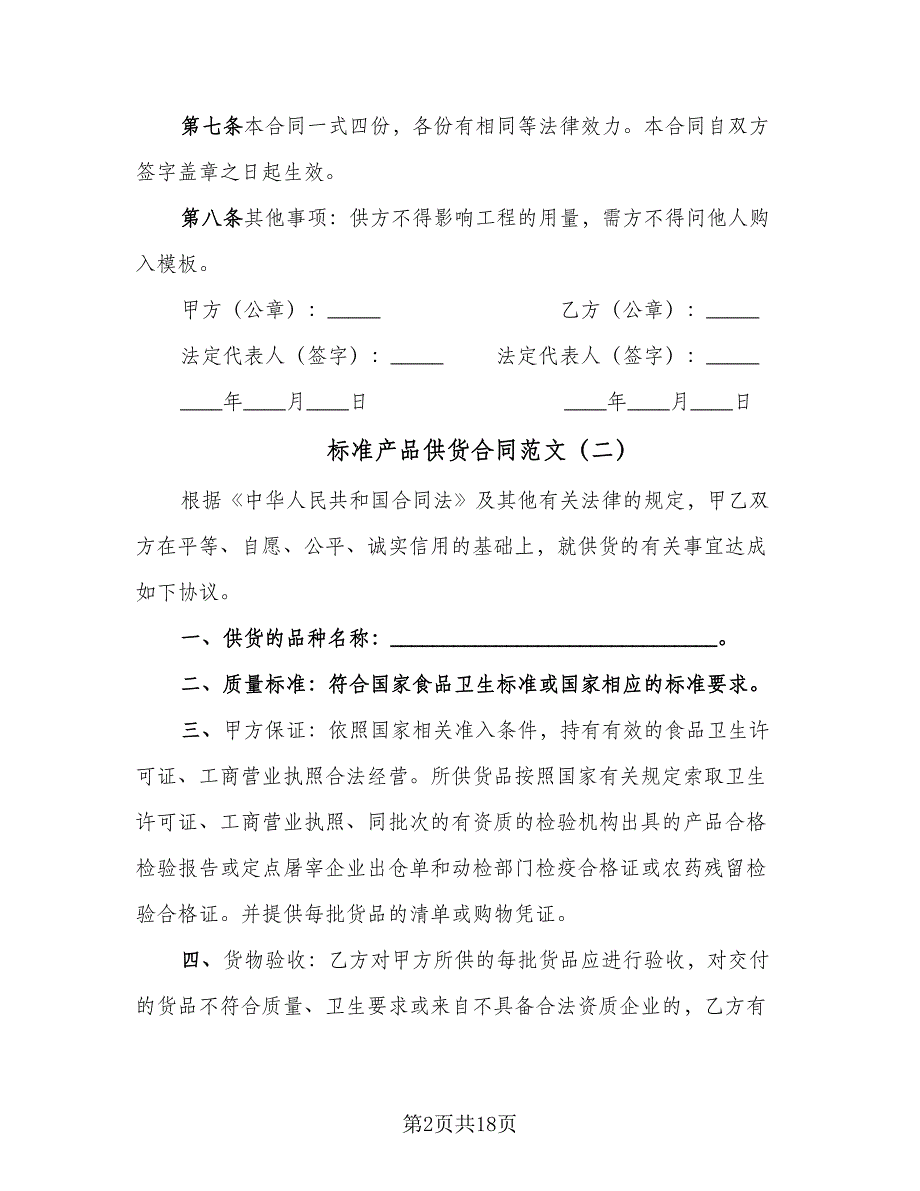 第七条本合同一式四份，各份有相同等法律效力。本合同自双方
签字盖章之日起生效。
第八条其他事项：供方不得影响工程的用量，需方不得问他人购
入模板。
甲方（公章）：_____ 乙方（公章）：_____
法定代表人（签字）：_____ 法定代表人（签字）：_____
____年____月____日 ____年____月____日
标准产品供货合同范文（二）
根据《中华人民共和国合同法》及其他有关法律的规定，甲乙双
方在平等、自愿、公平、诚实信用的基础上，就供货的有关事宜达成
如下协议。
一、供货的品种名称：_______________________________。
二、质量标准：符合国家食品卫生标准或国家相应的标准要求。
三、甲方保证：依照国家相关准入条件，持有有效的食品卫生许
可证、工商营业执照合法经营。所供货品按照国家有关规定索取卫生
许可证、工商营业执照、同批次的有资质的检验机构出具的产品合格
检验报告或定点屠宰企业出仓单和动检部门检疫合格证或农药残留检
验合格证。并提供每批货品的清单或购物凭证。
四、货物验收：乙方对甲方所供的每批货品应进行验收，对交付
的货品不符合质量、卫生要求或来自不具备合法资质企业的，乙方有
第2页共18页